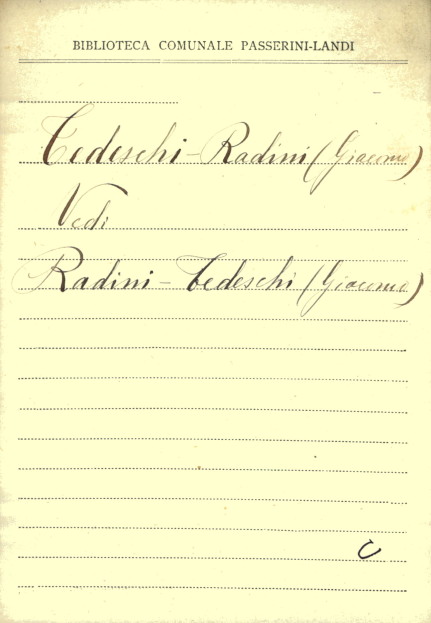 BIBLIOTECA COMUNALE PASSERINI-LANDI
Tedeschi-Radini (Giacomo)
Vedi
Radini-Tedeschi (Giacomo)
C